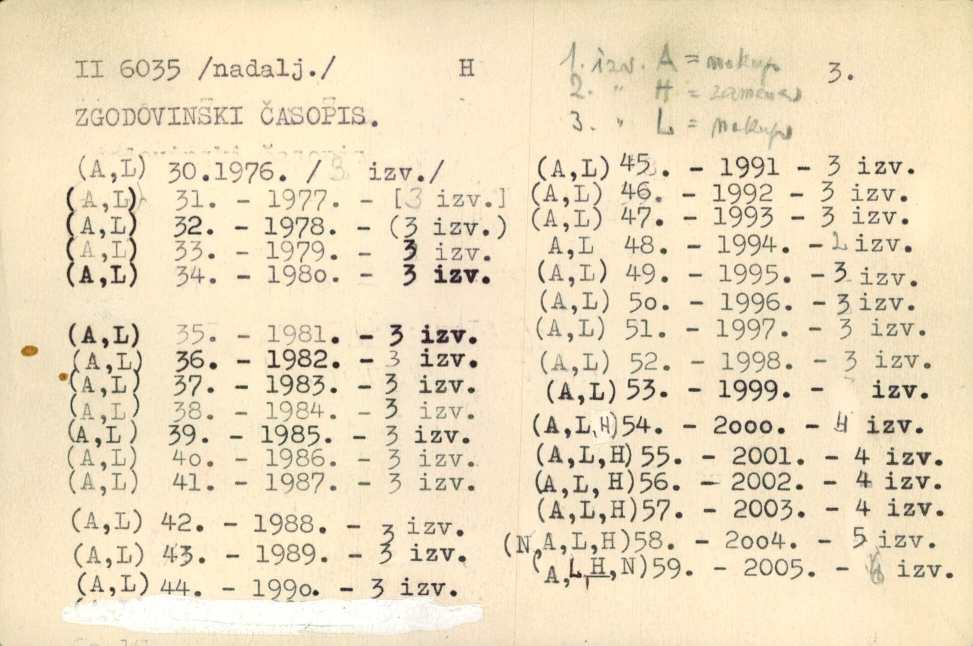 II 6035 /nadalj./ H
ZGODOVINSKI ČASOPIS.
(A,L) 30.1976. / 3 izv./
(A,L) 31. - 1977. - [3 izv.]
(A,L) 32. - 1978. - (3 izv.)
(A,L) 33. - 1979. - 3 izv.
(A,L) 34. - 1980. - 3 izv.
(A,L) 35. - 1981. - 3 izv.
(A,L) 36. - 1982. - 3 izv.
(A,L) 37. - 1983. - 3 izv.
(A,L) 38. - 1984. - 3 izv.
(A,L) 39. - 1985. - 3 izv.
(A,L) 40. - 1986. - 3 izv.
(A,L) 41. - 1987. - 3 izv.
(A,L) 42. - 1988. - 3 izv.
(A,L) 43. - 1989. - 3 izv.
(A,L) 44. - 1990. - 3 izv.
1. izv. A = nakup 3.
2. " H = zamena
3. " L = nakup
(A,L) 45. - 1991 - 3 izv.
(A,L) 46. - 1992 - 3 izv.
(A,L) 47. - 1993 - 3 izv.
A,L 48. - 1994. - 2 izv.
(A,L) 49. - 1995. - 3 izv.
(A,L) 50. - 1996. - 3 izv.
(A,L) 51. - 1997. - 3 izv.
(A,L) 52. - 1998. - 3 izv.
(A,L) 53. - 1999. - izv.
(A,L,H) 54. - 2000. - 4 izv.
(A,L,H) 55. - 2001. - 4 izv.
(A,L,H) 56. - 2002. - 4 izv.
(A,L,H) 57. - 2003. - 4 izv.
(N,A,L,H) 58. - 2004. - 5 izv.
(A,L,H,N) 59. - 2005. - izv.